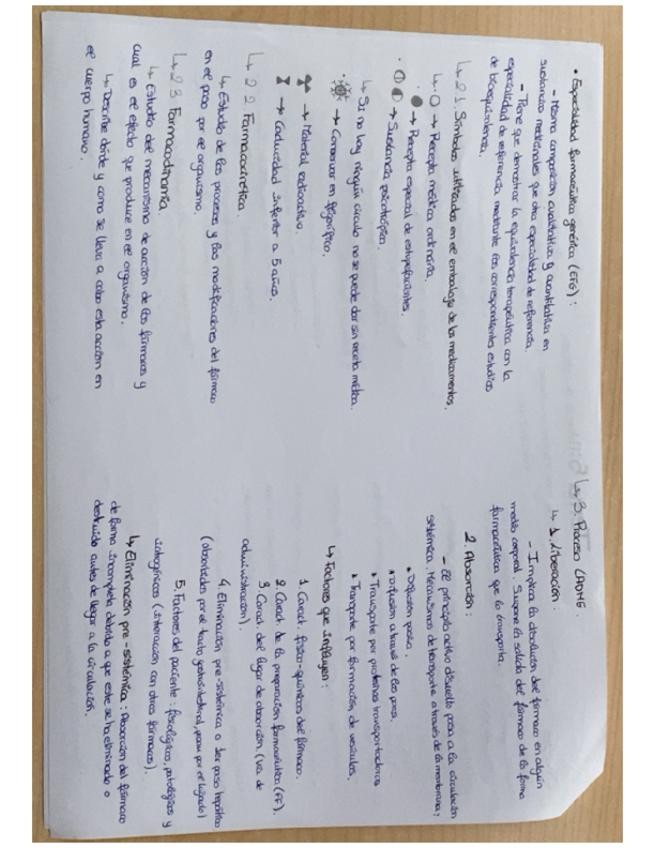 • Especialidad farmacéutica genérica (EFG):
- Misma composición cualitativa y cuantitativa en
sustancias medicinales que otra especialidad de referencia.
- Tiene que demostrar la equivalencia terapéutica con la
especialidad de referencia mediante los correspondientes estudios
de bioequivalencia.
↳ 2.1. Símbolos utilizados en el embalaje de los medicamentos.
↳ ○ → Receta médica ordinaria.
• ● → Receta especial de estupefacientes.
• ◐ ⦶ → Sustancia psicotrópica.
↳ Si no hay ningún círculo no se puede dar sin receta médica.
→ Conservar en frigorífico.
→ Material radioactivo.
→ Caducidad inferior a 5 años.
↳ 2.2 Farmacocinética.
↳ Estudio de los procesos y las modificaciones del fármaco
en el paso por el organismo.
↳ 2.3 Farmacodinamia
↳ Estudio del mecanismo de acción de los fármacos y
cual es el efecto que produce en el organismo.
↳ Describe dónde y como se lleva a cabo esta acción en
el cuerpo humano.
↳ 3. Proceso LADME.
↳ 1. Liberación.
- Implica la disolución del fármaco en algún
medio corporal. Supone la salida del fármaco de la forma
farmacéutica que lo transporta.
2. Absorción:
- El principio activo disuelto pasa a la circulación
sistémica. Mecanismos de transporte a través de la membrana:
• Difusión pasiva.
• Difusión a través de los poros.
• Transporte por proteínas transportadoras
• Transporte por formación de vesículas.
↳ Factores que influyen:
1. Caract. físico-químicas del fármaco.
2. Caract. de la preparación farmacéutica (FF).
3. Caract. del lugar de absorción (vía de
administración).
4. Eliminación pre-sistémica o 1er paso hepático
(absorbidos por el tracto gastrointestinal, pasan por el hígado)
5. Factores del paciente: fisiológicos, patológicos y
iatrogénicos (interacción con otros fármacos).
↳ Eliminación pre-sistémica: Absorción del fármaco
de forma incompleta debido a que este se ha eliminado o
destruido antes de llegar a la circulación.